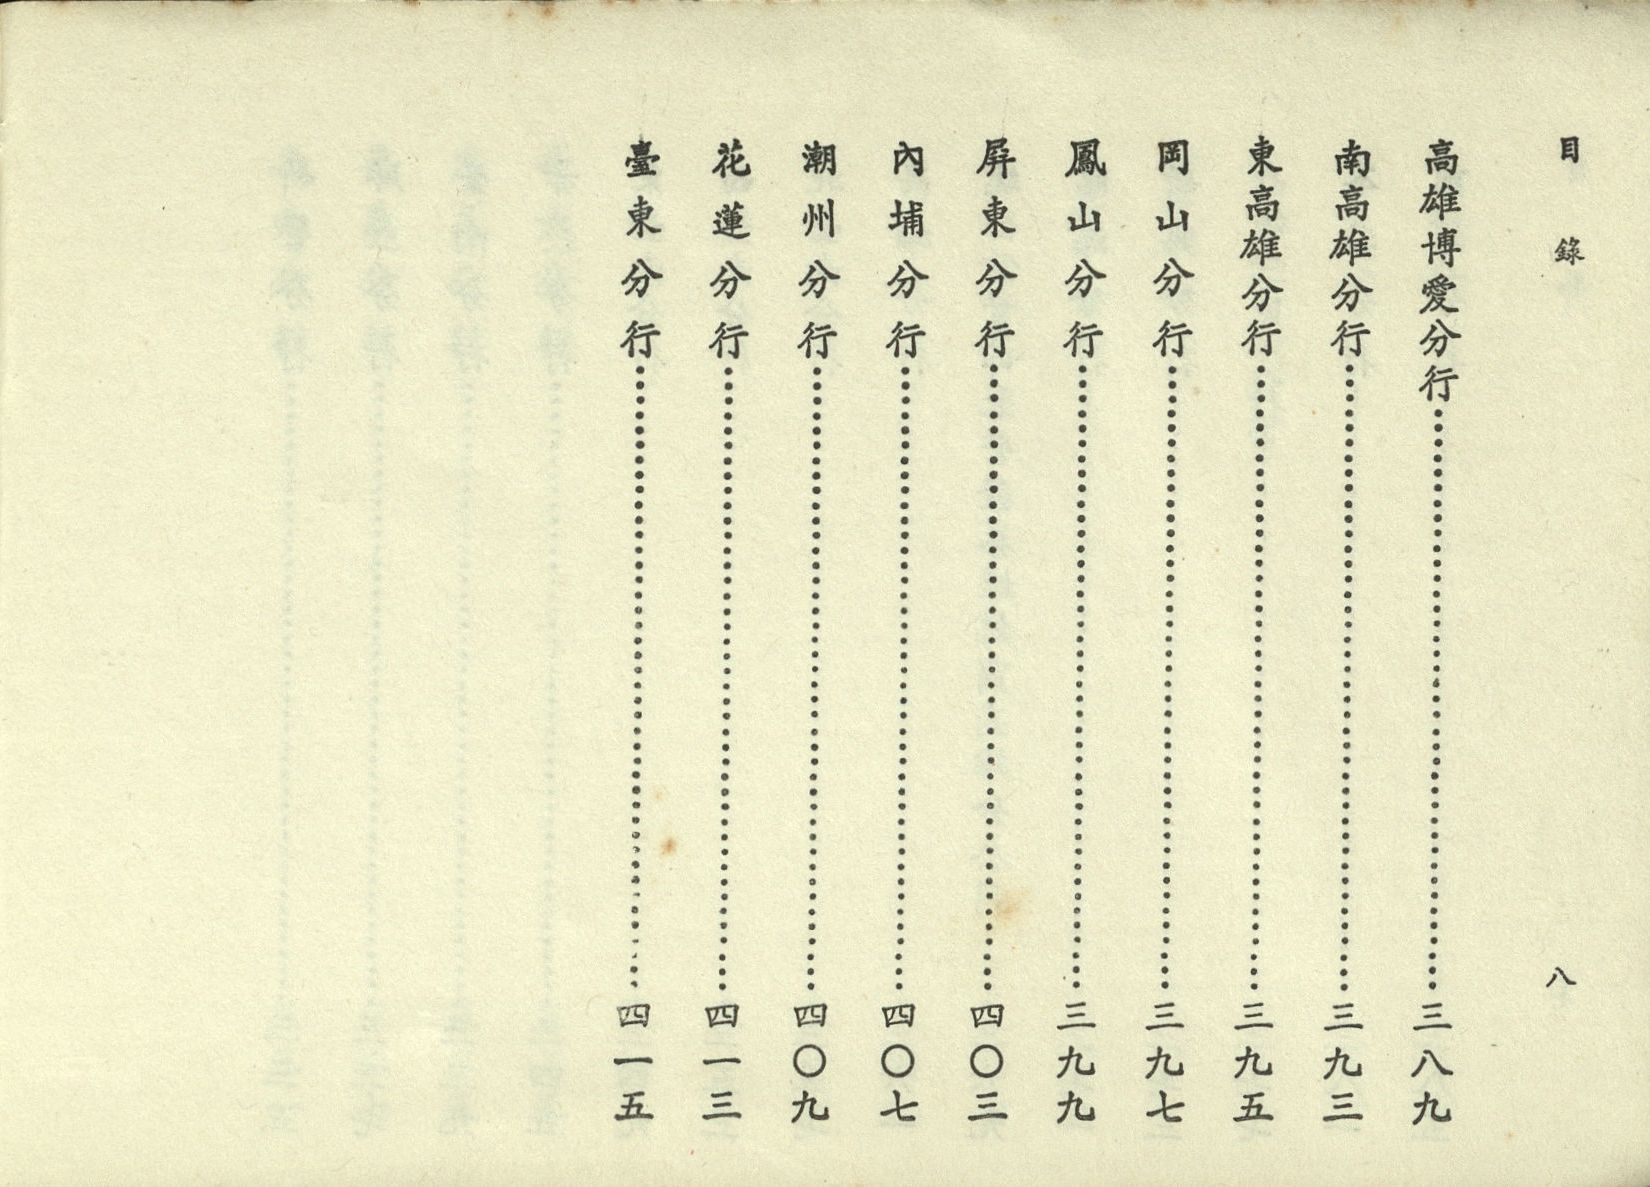 目錄
八
高雄博愛分行………三八九
南高雄分行………三九三
東高雄分行………三九五
岡山分行………三九七
鳳山分行………三九九
屛東分行………四〇三
內埔分行………四〇七
潮州分行………四〇九
花蓮分行………四一三
臺東分行………四一五